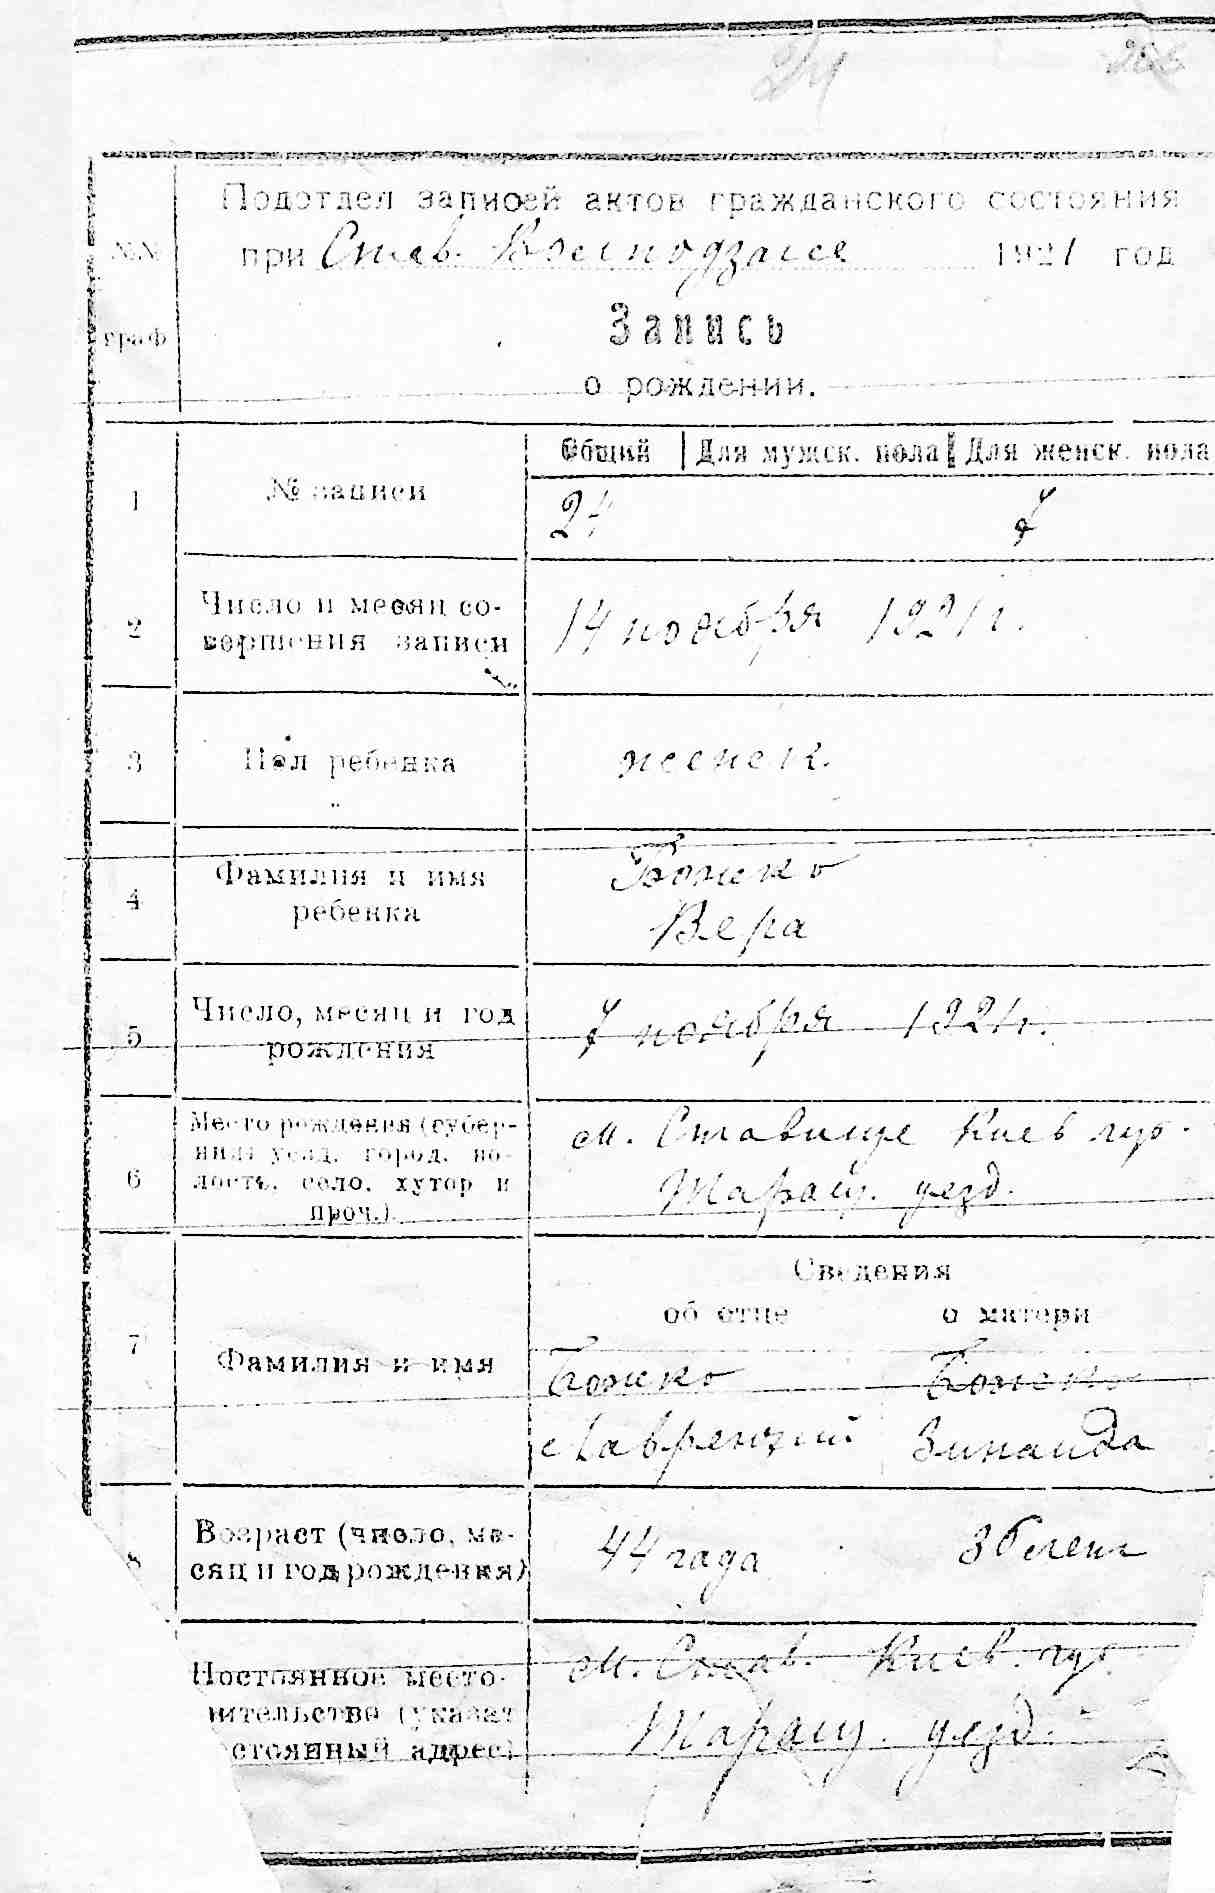 24
Подотдел записей актов гражданского состояния
при Став. 1921 год
№№
граф
Запись
о рождении.
Общий Для мужск. пола Для женск. пола
1 № записи
24 7
2 Число и месяц со-
вершения записи
14 ноября 1921 г.
3 Пол ребенка
женск.
4 Фамилия и имя
ребенка
Божко
Вера
5 Число, месяц и год
рождения
7 ноября 1921 г.
6 Место рождения (губер-
ния, уезд, город, во-
лость, село, хутор и
проч.).
м. Ставище Киев губ.
Таращ. уезд.
Сведения
об отце о матери
7 Фамилия и имя
Божко Божко
Лаврентий Зинаида
8 Возраст (число, ме-
сяц и год рождения)
44 года 36 лет
Постоянное место-
жительство (указат
стоянный адрес)
м. Став. Киев. губ.
Таращ. уезд.